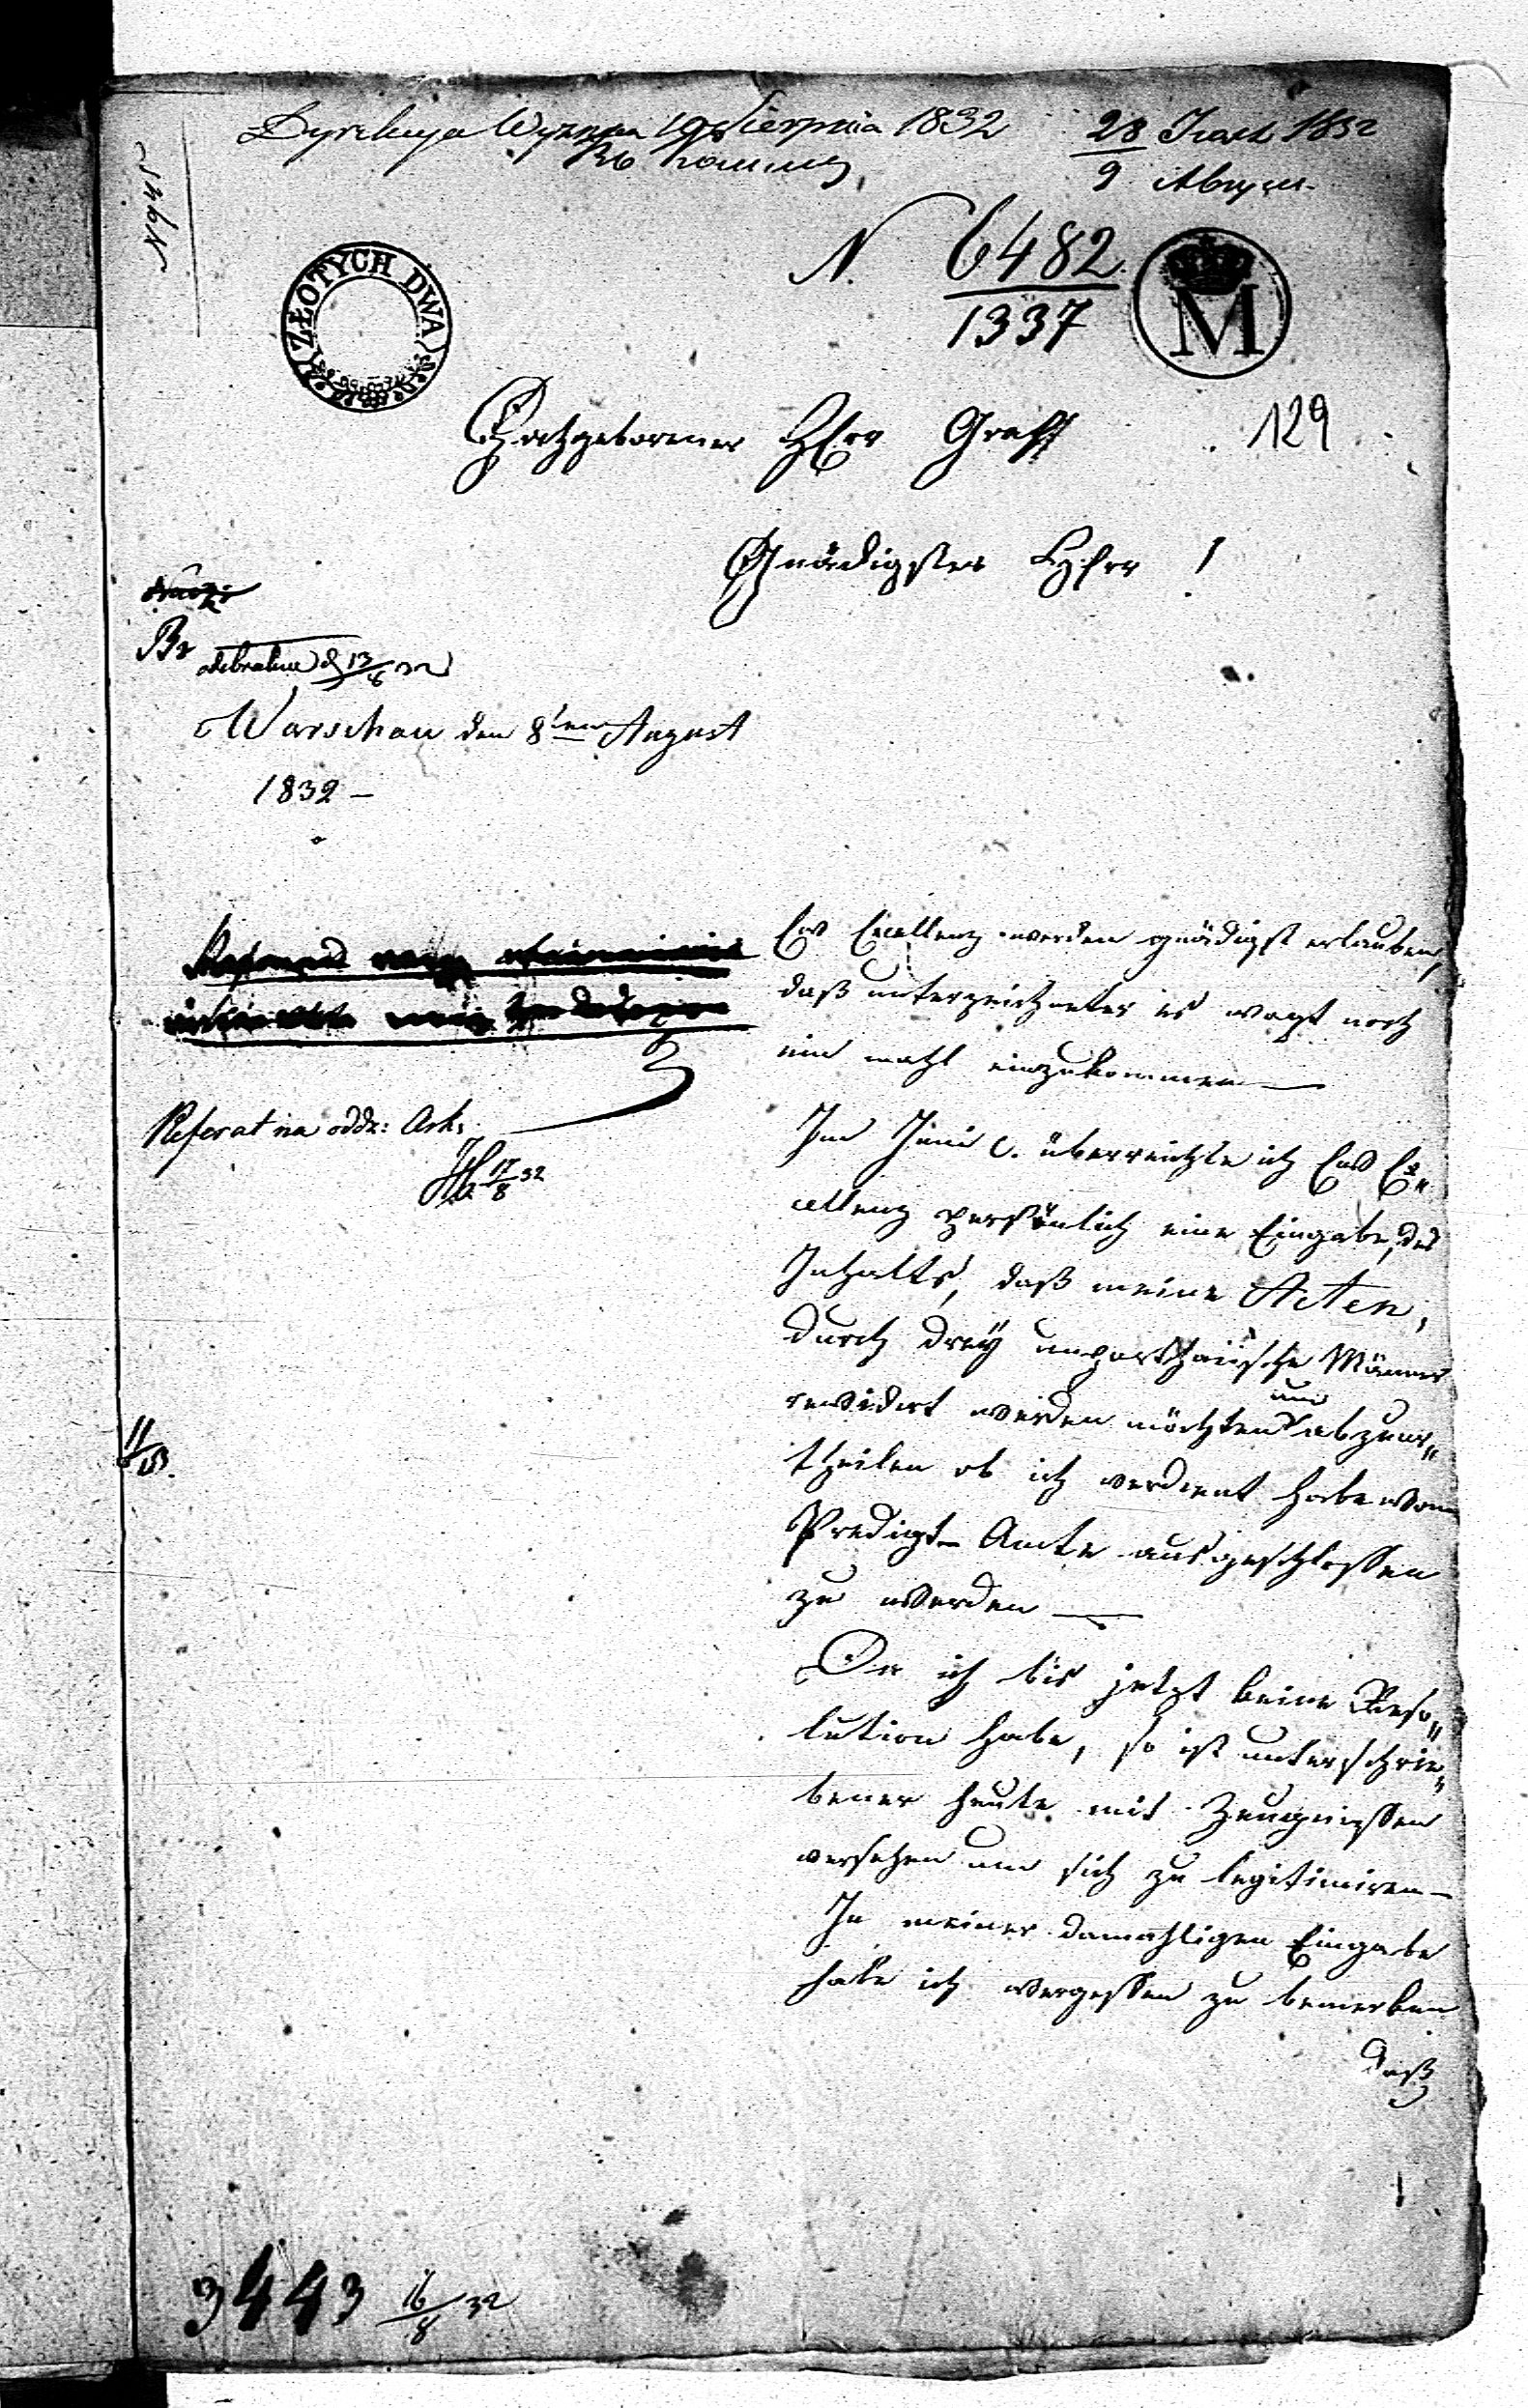 1832
28 1832
9
N. 6482
1337
ZŁOTYCH DWA
M
129
Hochgeborener Herr Graff
Gnädigster Herr !
odebrałem d 13/8 32
Warschau den 8ten August
1832 –
Ew Excellenz werden gnädigst erlauben,
daß unterzeichneter es wagt noch
ein mahl einzukommen —
Im Juni c. überreichte ich Ew Ex„
cellenz persönlich eine Eingabe, des
Inhalts, daß meine Acten,
durch drey unpartheiische Männer
revidirt werden möchten um abzuur„
theilen ob ich verdient habe vom
Predigt-Amte ausgeschlossen
zu werden —
Da ich bis jetzt keine Reso„
lution habe, so ist unterschrie„
bener heute mit Zeugnissen
versehen um sich zu legitimiren –
In meiner damahligen Eingabe
habe ich vergessen zu bemerken
daß
Referat na oddz:
17/8 32
3443 16/8 32